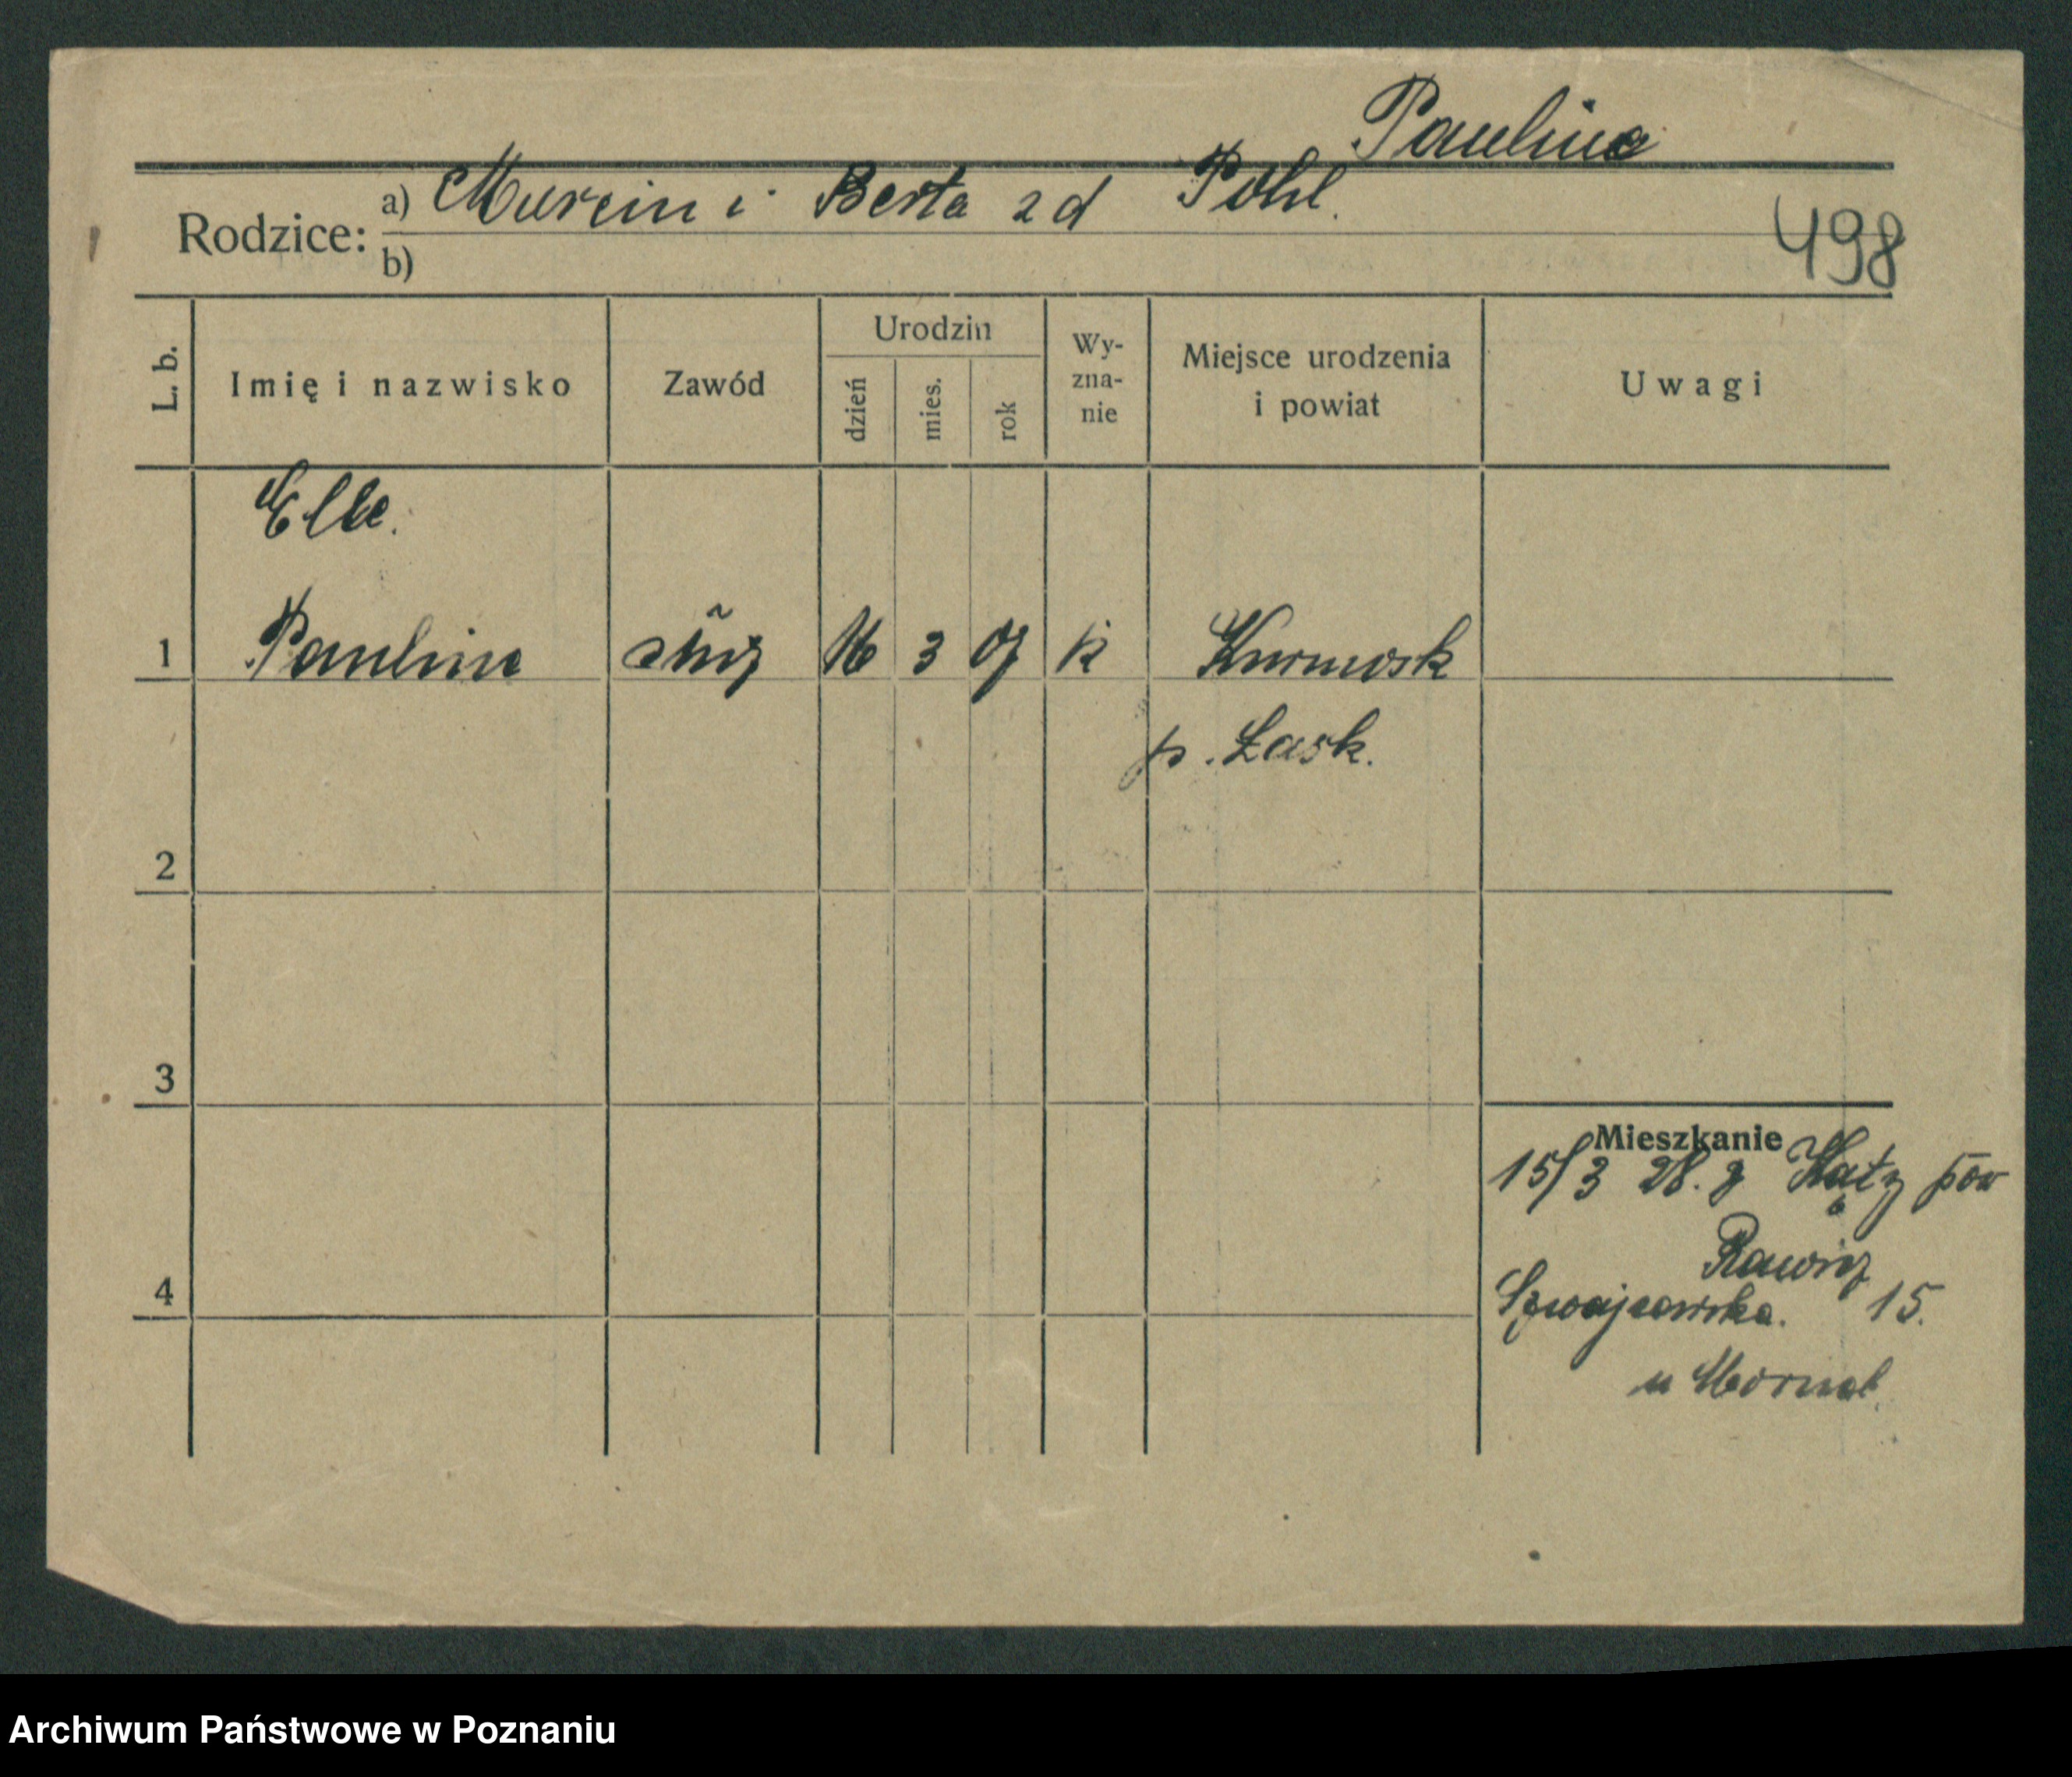 Paulina
Rodzice: a) Marcin i Berta zd Pohl.
b)
498
L. b.
Imię i nazwisko
Zawód
Urodzin
dzień
mies.
rok
Wy-
zna-
nie
Miejsce urodzenia
i powiat
Uwagi
Elke.
1 Paulina służ 16 3 07 k
p. Łask.
2
3
4
Mieszkanie
15/3 28. z Kąty pow
Rawicz
Szwajcarska. 15.
u
Archiwum Państwowe w Poznaniu